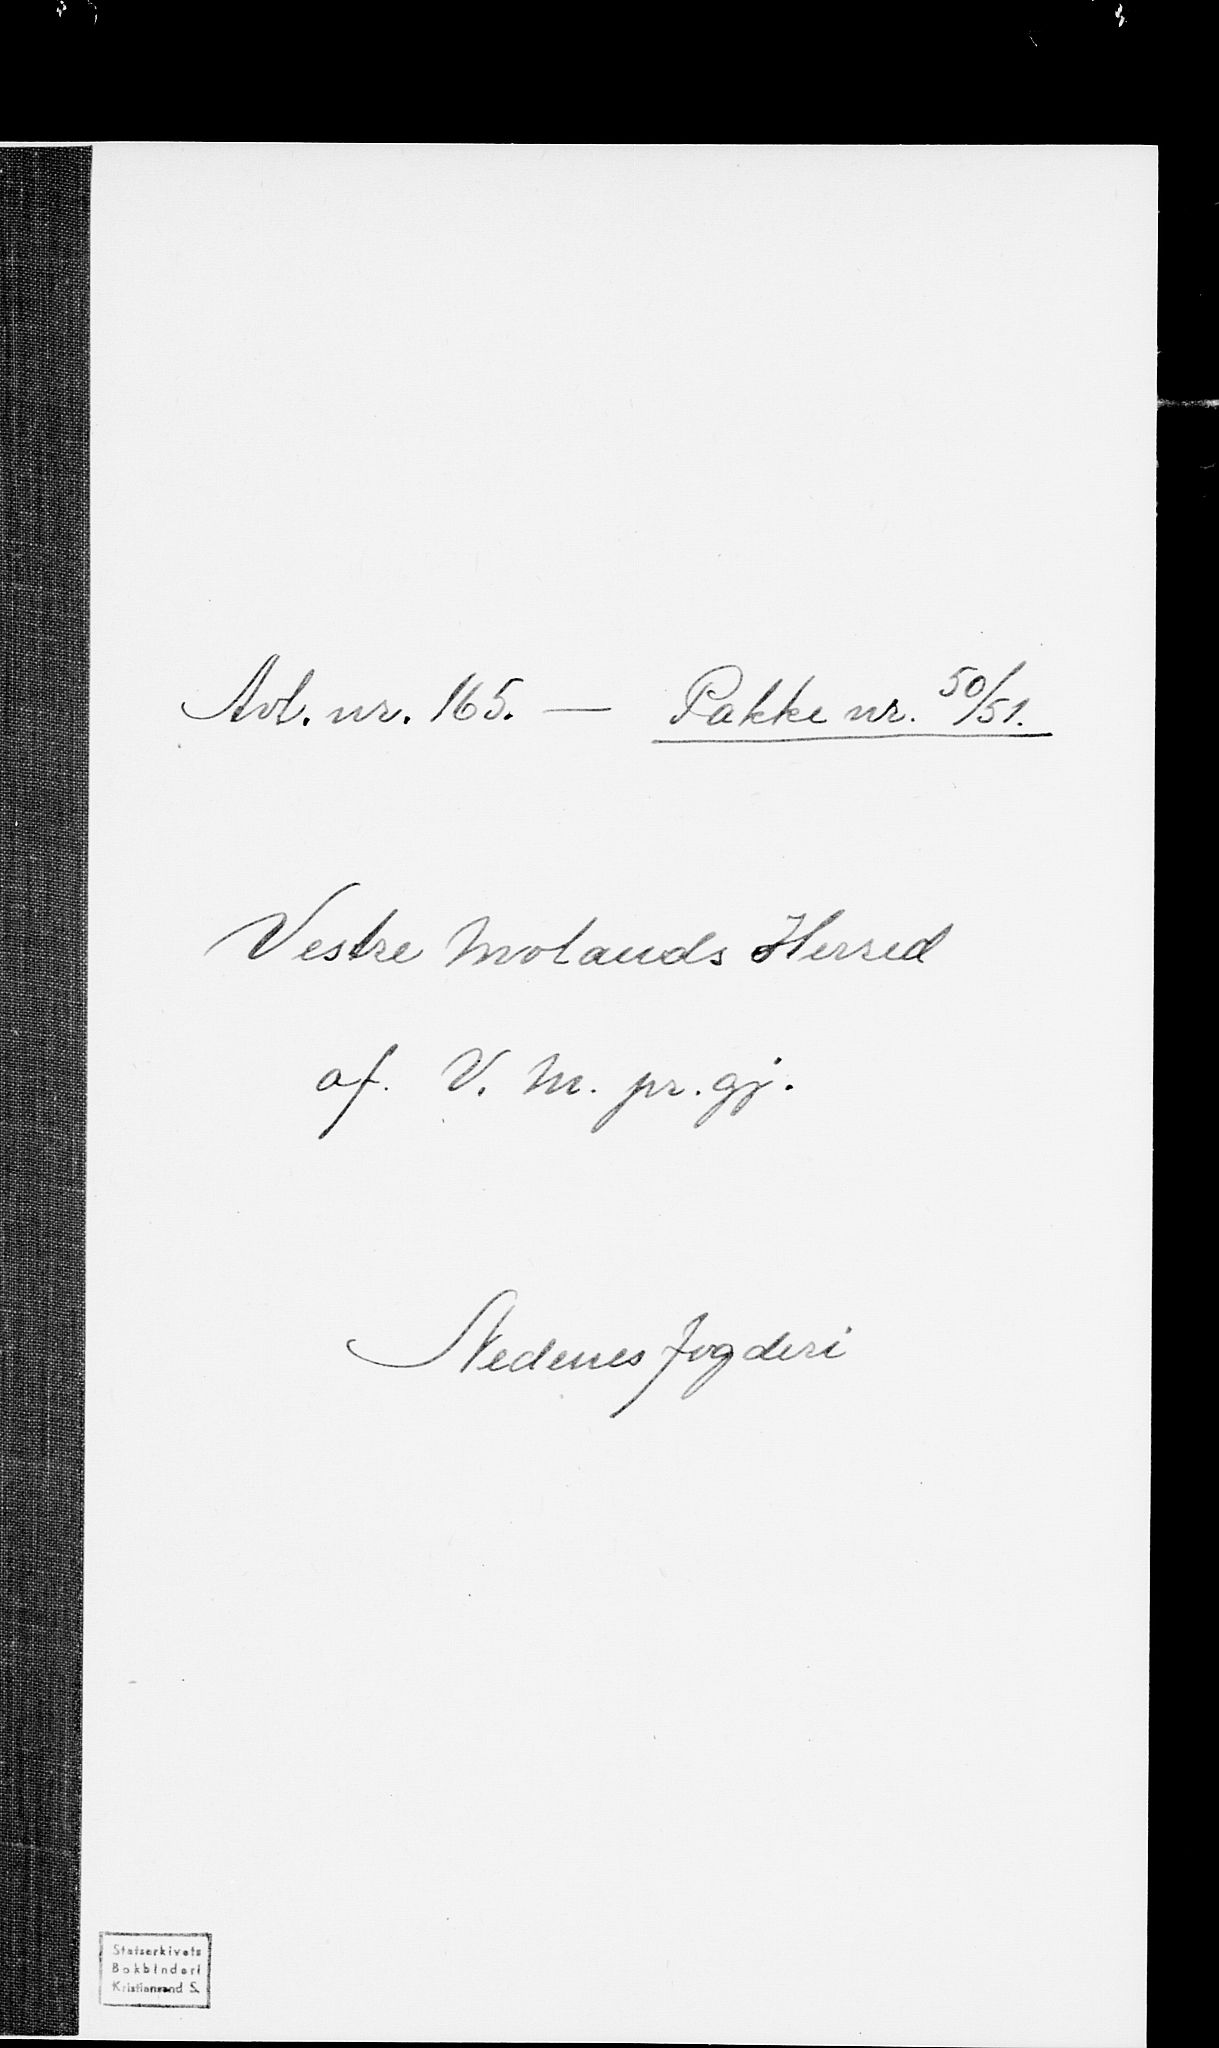 Avl. nr. 165. — Pakke nr. 50/51.
Vestre Molands Herred
af. V. M. pr. gj.
Nedenes fogderi
Statsarkivets
Bokbinderi
Kristiansand S.